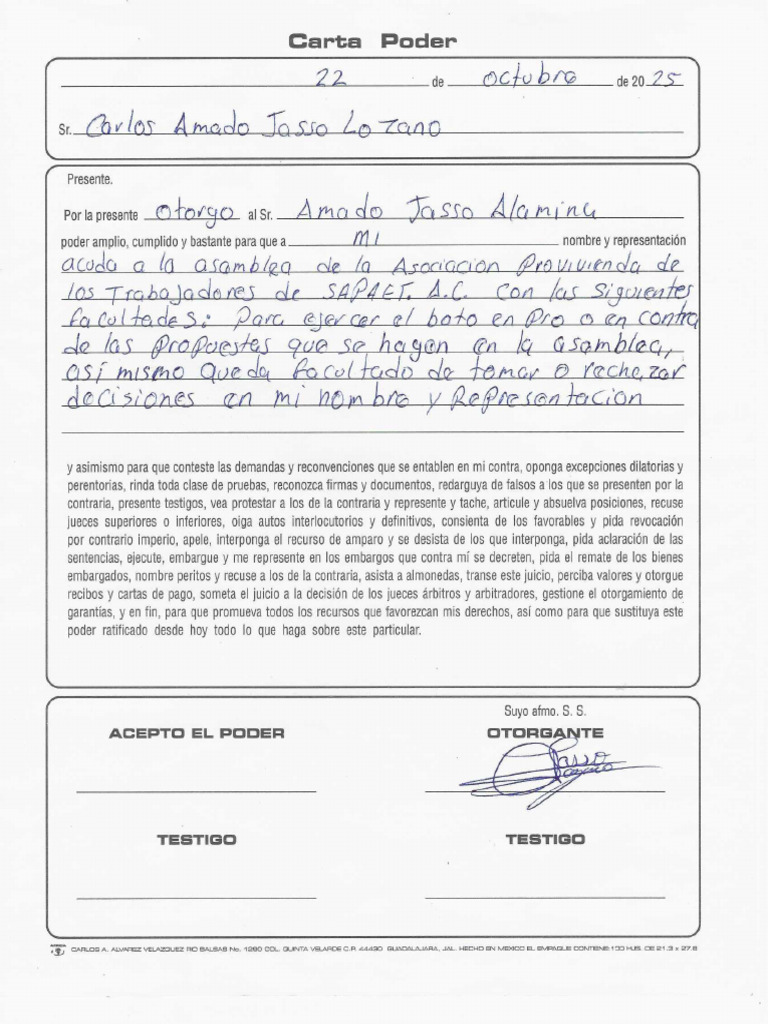 Carta Poder
22 de octubre de 2025
Sr. Carlos Amado Jasso Lozano
Presente.
Por la presente otorgo al Sr. Amado Jasso Alamina
poder amplio, cumplido y bastante para que a mi nombre y representación
acuda a la asamblea de la Asociacion Provivienda de
los Trabajadores de SAPAET. A.C. con las siguientes
facultades: Para ejercer el boto en pro o en contra
de las propuestas que se hagan en la asamblea,
así mismo queda facultado de tomar o rechazar
decisiones en mi nombre y Representacion
y asimismo para que conteste las demandas y reconvenciones que se entablen en mi contra, oponga excepciones dilatorias y
perentorias, rinda toda clase de pruebas, reconozca firmas y documentos, redarguya de falsos a los que se presenten por la
contraria, presente testigos, vea protestar a los de la contraria y represente y tache, articule y absuelva posiciones, recuse
jueces superiores o inferiores, oiga autos interlocutorios y definitivos, consienta de los favorables y pida revocación
por contrario imperio, apele, interponga el recurso de amparo y se desista de los que interponga, pida aclaración de las
sentencias, ejecute, embargue y me represente en los embargos que contra mí se decreten, pida el remate de los bienes
embargados, nombre peritos y recuse a los de la contraria, asista a almonedas, transe este juicio, perciba valores y otorgue
recibos y cartas de pago, someta el juicio a la decisión de los jueces árbitros y arbitradores, gestione el otorgamiento de
garantías, y en fin, para que promueva todos los recursos que favorezcan mis derechos, así como para que sustituya este
poder ratificado desde hoy todo lo que haga sobre este particular.
Suyo afmo. S. S.
ACEPTO EL PODER
OTORGANTE
Jasso
Lozano
TESTIGO
TESTIGO
CARLOS A. ALVAREZ VELAZQUEZ RIO BALSAS No. 1290 COL. QUINTA VELARDE C.P. 44430 GUADALAJARA, JAL. HECHO EN MEXICO EL EMPAQUE CONTIENE 100 HJS. DE 21.3 x 27.8